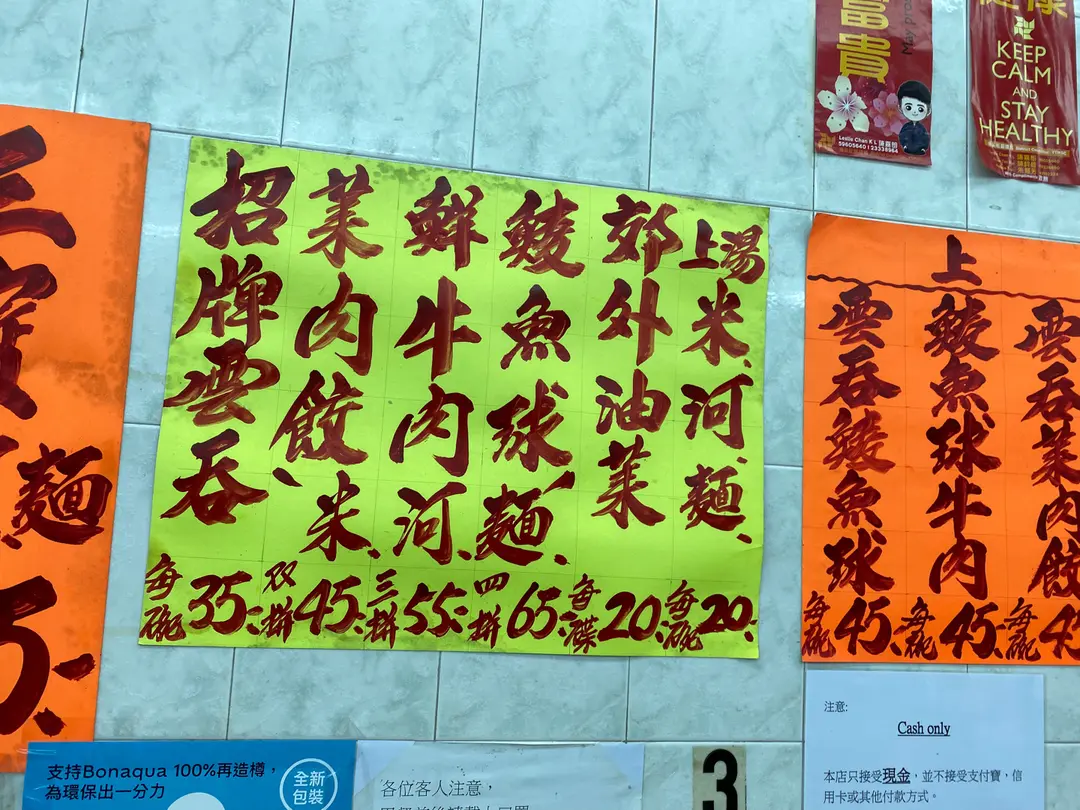 富貴
Leslie Chan K L
59605640 | 23338964
健康
KEEP
CALM
AND
STAY
HEALTHY
三寶
麵
招牌雲吞
每碗35.
菜肉餃、米、
双拼45.
鮮牛肉河、
三拼55.
鯪魚球麵、
四拼65.
郊外油菜
每碟20.
上湯米、河、麵、
每碗20.
上
雲吞鯪魚球
每碗45.
鯪魚球牛肉
每碗45.
雲吞菜肉餃
每碗
支持Bonaqua 100%再造樽，
為環保出一分力
全新
包裝
各位客人注意，
3
注意:
Cash only
本店只接受現金，並不接受支付寶，信
用卡或其他付款方式。